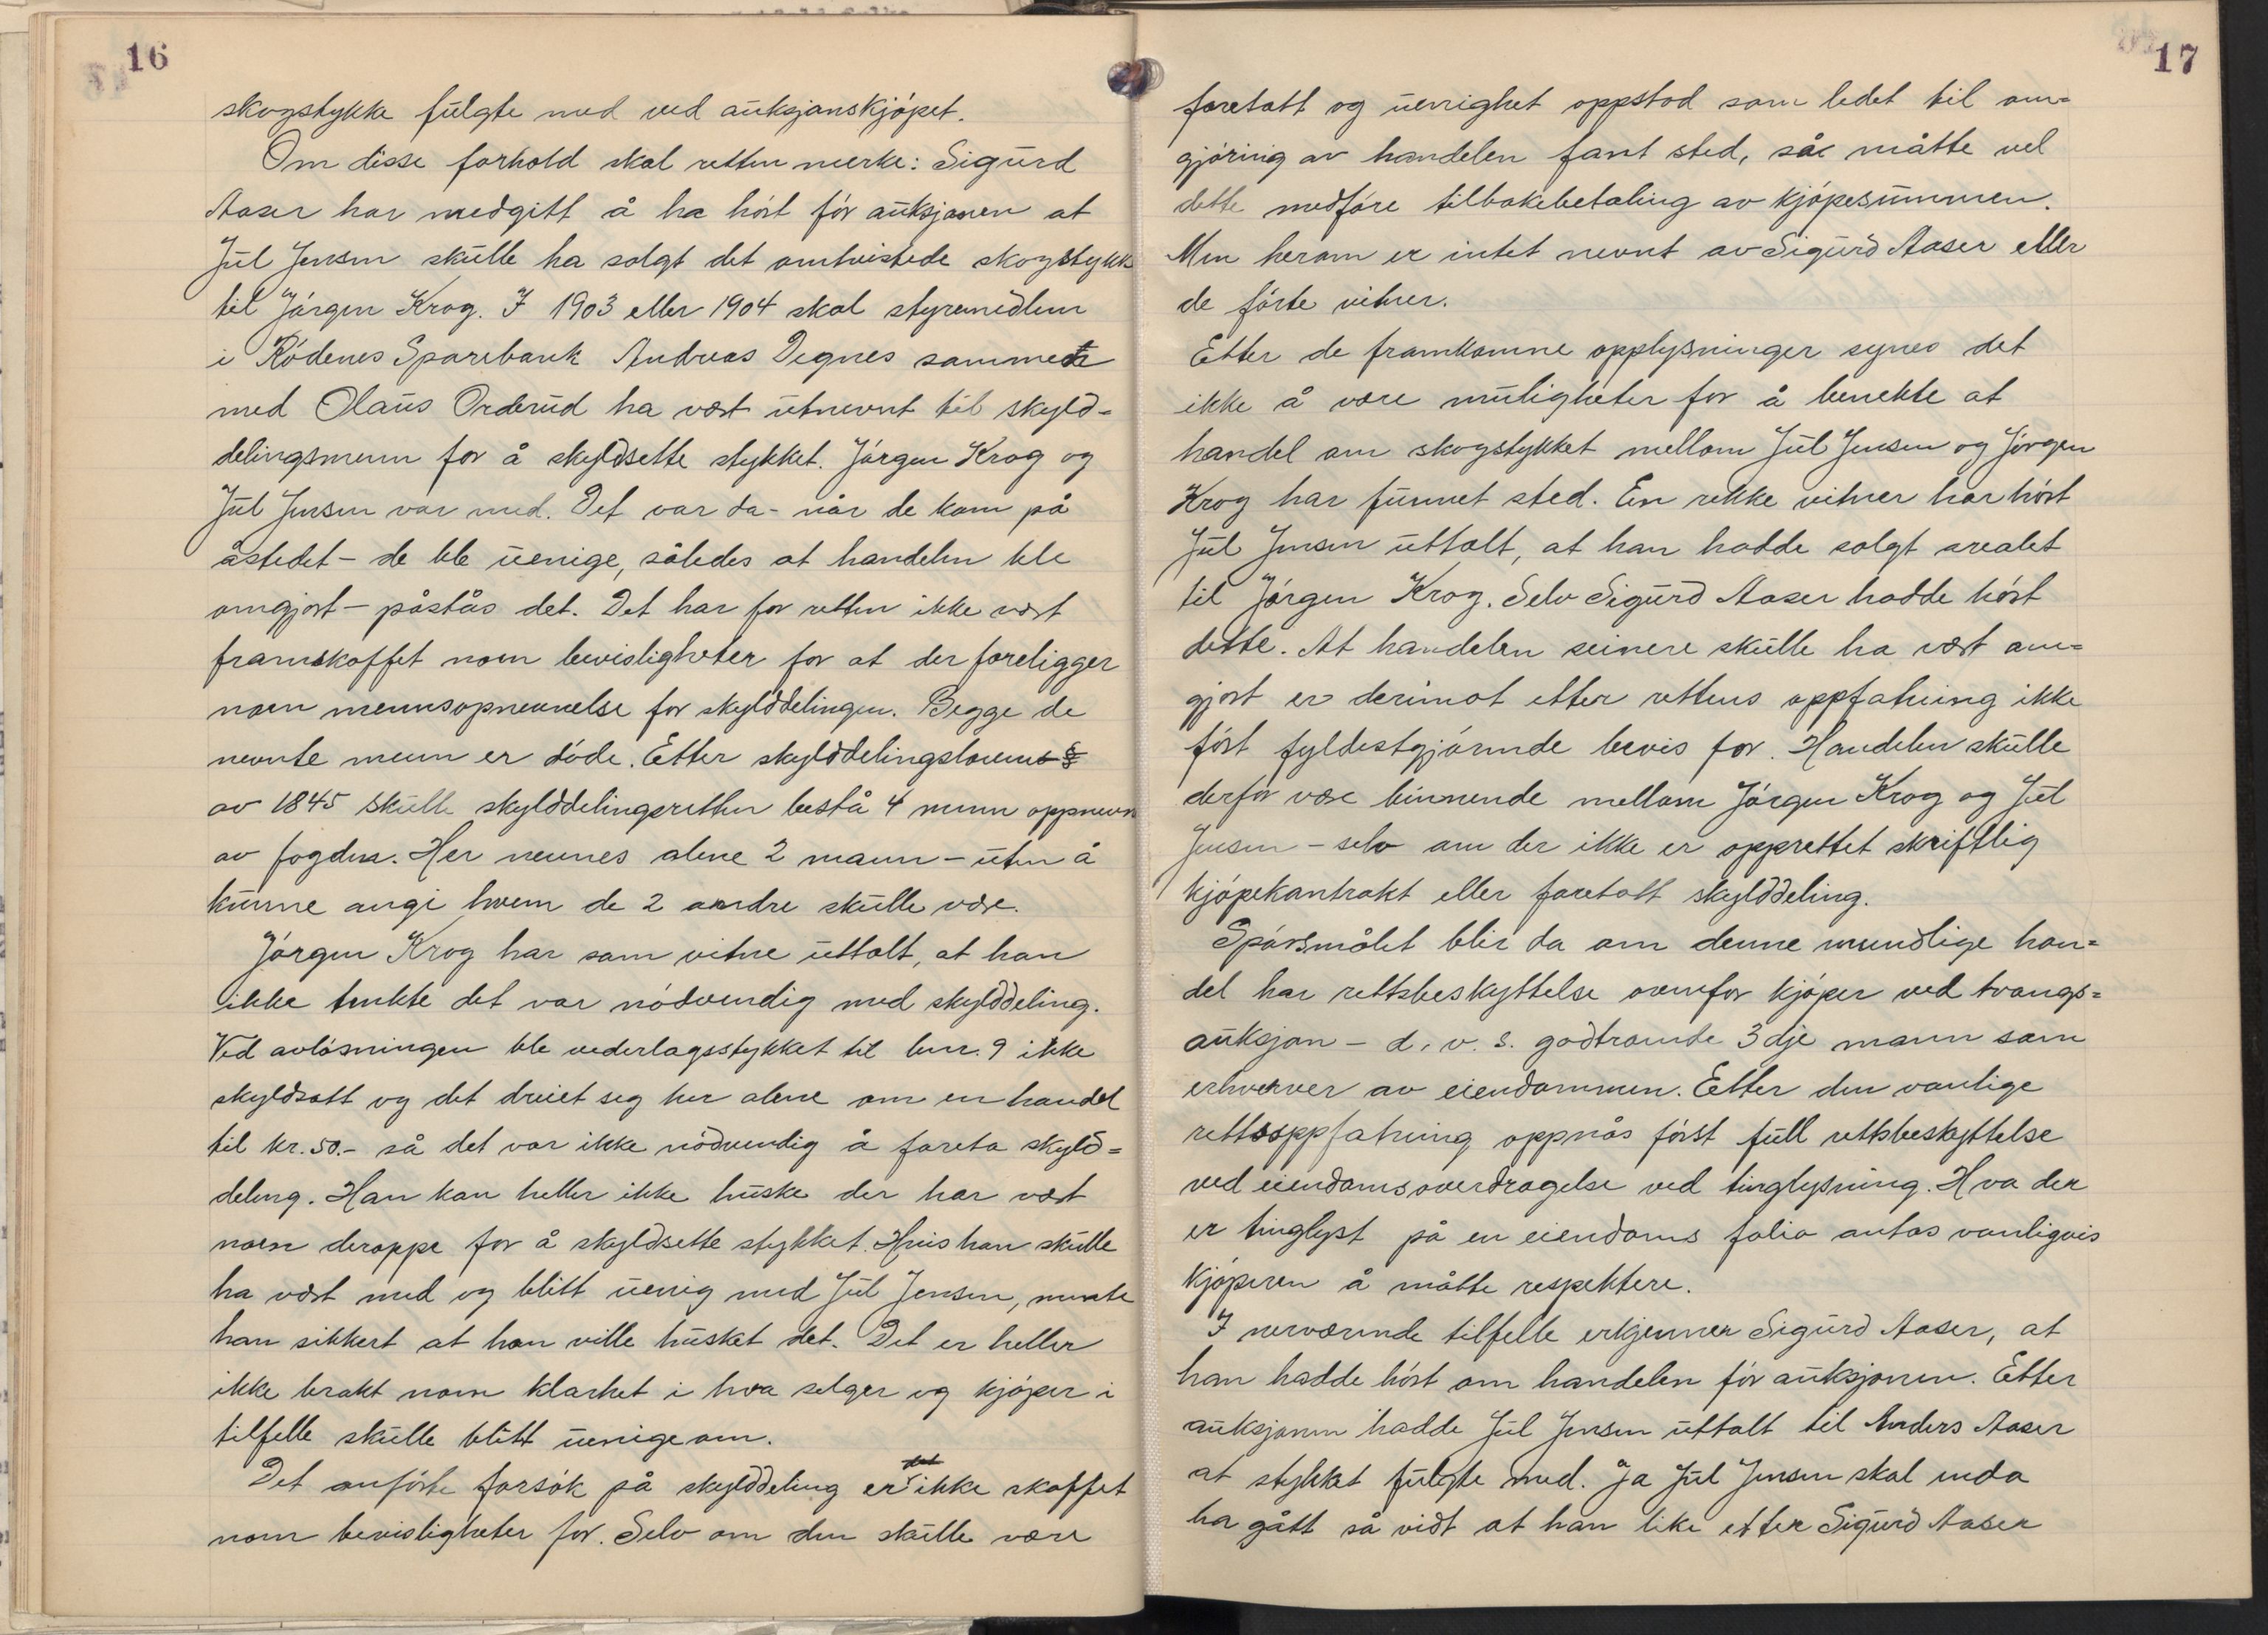 16
skogstykke fulgte med ved auksjonskjøpet.
Om disse forhold skal retten merke: Sigurd
Aaser har medgitt å ha hørt før auksjonen at
Jul Jensen skulle ha solgt det omtvistede skogstykk
til Jørgen Krog. I 1903 eller 1904 skal styremedlem
i Rødenes Sparebank Andreas Degnes sammen
med Olaus Orderud ha vært utnevnt til skyld=
delingsmenn for å skyldsette stykket. Jørgen Krog og
Jul Jensen var med. Det var da - når de kom på
åstedet - de ble uenige, således at handelen ble
omgjort - påstås det. Det har for retten ikke vært
framskaffet noen bevisligheter for at der foreligger
noen mennsopnevnelse for skylddelingen. Begge de
nevnte menn er døde. Etter skylddelingslovens §
av 1845 skulle skylddelingsretten bestå 4 menn oppnevn
av fogden. Her nevnes alene 2 mann - uten å
kunne angi hvem de 2 andre skulle være.
Jørgen Krog har som vitne uttalt, at han
ikke tenkte det var nødvendig med skylddeling.
Ved avløsningen ble vederlagsstykket til bnr. 9 ikke
skyldsatt og det dreiet seg her alene om en handel
til kr. 50.- så det var ikke nødvendig å foreta skyld=
deling. Han kan heller ikke huske der har vært
noen deroppe for å skyldsette stykket. Hvis han skulle
ha vært med og blitt uenig med Jul Jensen, mente
han sikkert at han ville husket det. Det er heller
ikke brakt noen klarhet i hva selger og kjøper i
tilfelle skulle blitt uenige om.
Det anførte forsøk på skylddeling er det ikke skaffet
noen bevisligheter for. Selv om den skulle være
17
foretatt og uenighet oppstod som ledet til om=
gjøring av handelen fant sted, så måtte vel
dette medføre tilbakebetaling av kjøpesummen.
Men herom er intet nevnt av Sigurd Aaser eller
de førte vitner.
Etter de framkomne opplysninger synes det
ikke å være muligheter for å benekte at
handel om skogstykket mellom Jul Jensen og Jørgen
Krog har funnet sted. En rekke vitner har hørt
Jul Jensen uttalt, at han hadde solgt arealet
til Jørgen Krog. Selv Sigurd Aaser hadde hørt
dette. At handelen seinere skulle ha vært om=
gjort er derimot etter rettens oppfatning ikke
ført fyldestgjørende bevis for. Handelen skulle
derfor være bindende mellom Jørgen Krog og Jul
Jensen - selv om der ikke er opprettet skriftlig
kjøpekontrakt eller foretatt skylddeling.
Spørsmålet blir da om denne mundlige han=
del har rettsbeskyttelse ovenfor kjøper ved tvangs=
auksjon - d. v. s. godtroende 3dje mann som
erhverver av eiendommen. Etter den vanlige
rettsoppfatning oppnås først full rettsbeskyttelse
ved eiendomsoverdragelse ved tinglysning. Hva der
er tinglyst på en eiendoms folio antas vanligvis
kjøperen å måtte respektere.
I nerværende tilfelle erkjenner Sigurd Aaser, at
han hadde hørt om handelen før auksjonen. Etter
auksjonen hadde Jul Jensen uttalt til Anders Aaser
at stykket fulgte med. Ja Jul Jensen skal enda
ha gått så vidt at han like etter Sigurd Aaser